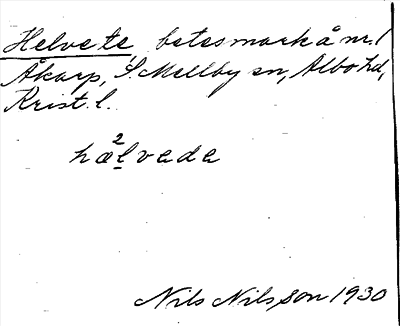 Helvete, betesmark å nr. 1
Åkarp, S. Mellby sn, Albo hd,
Krist. l.
2
hælvede
Nils Nilsson 1930